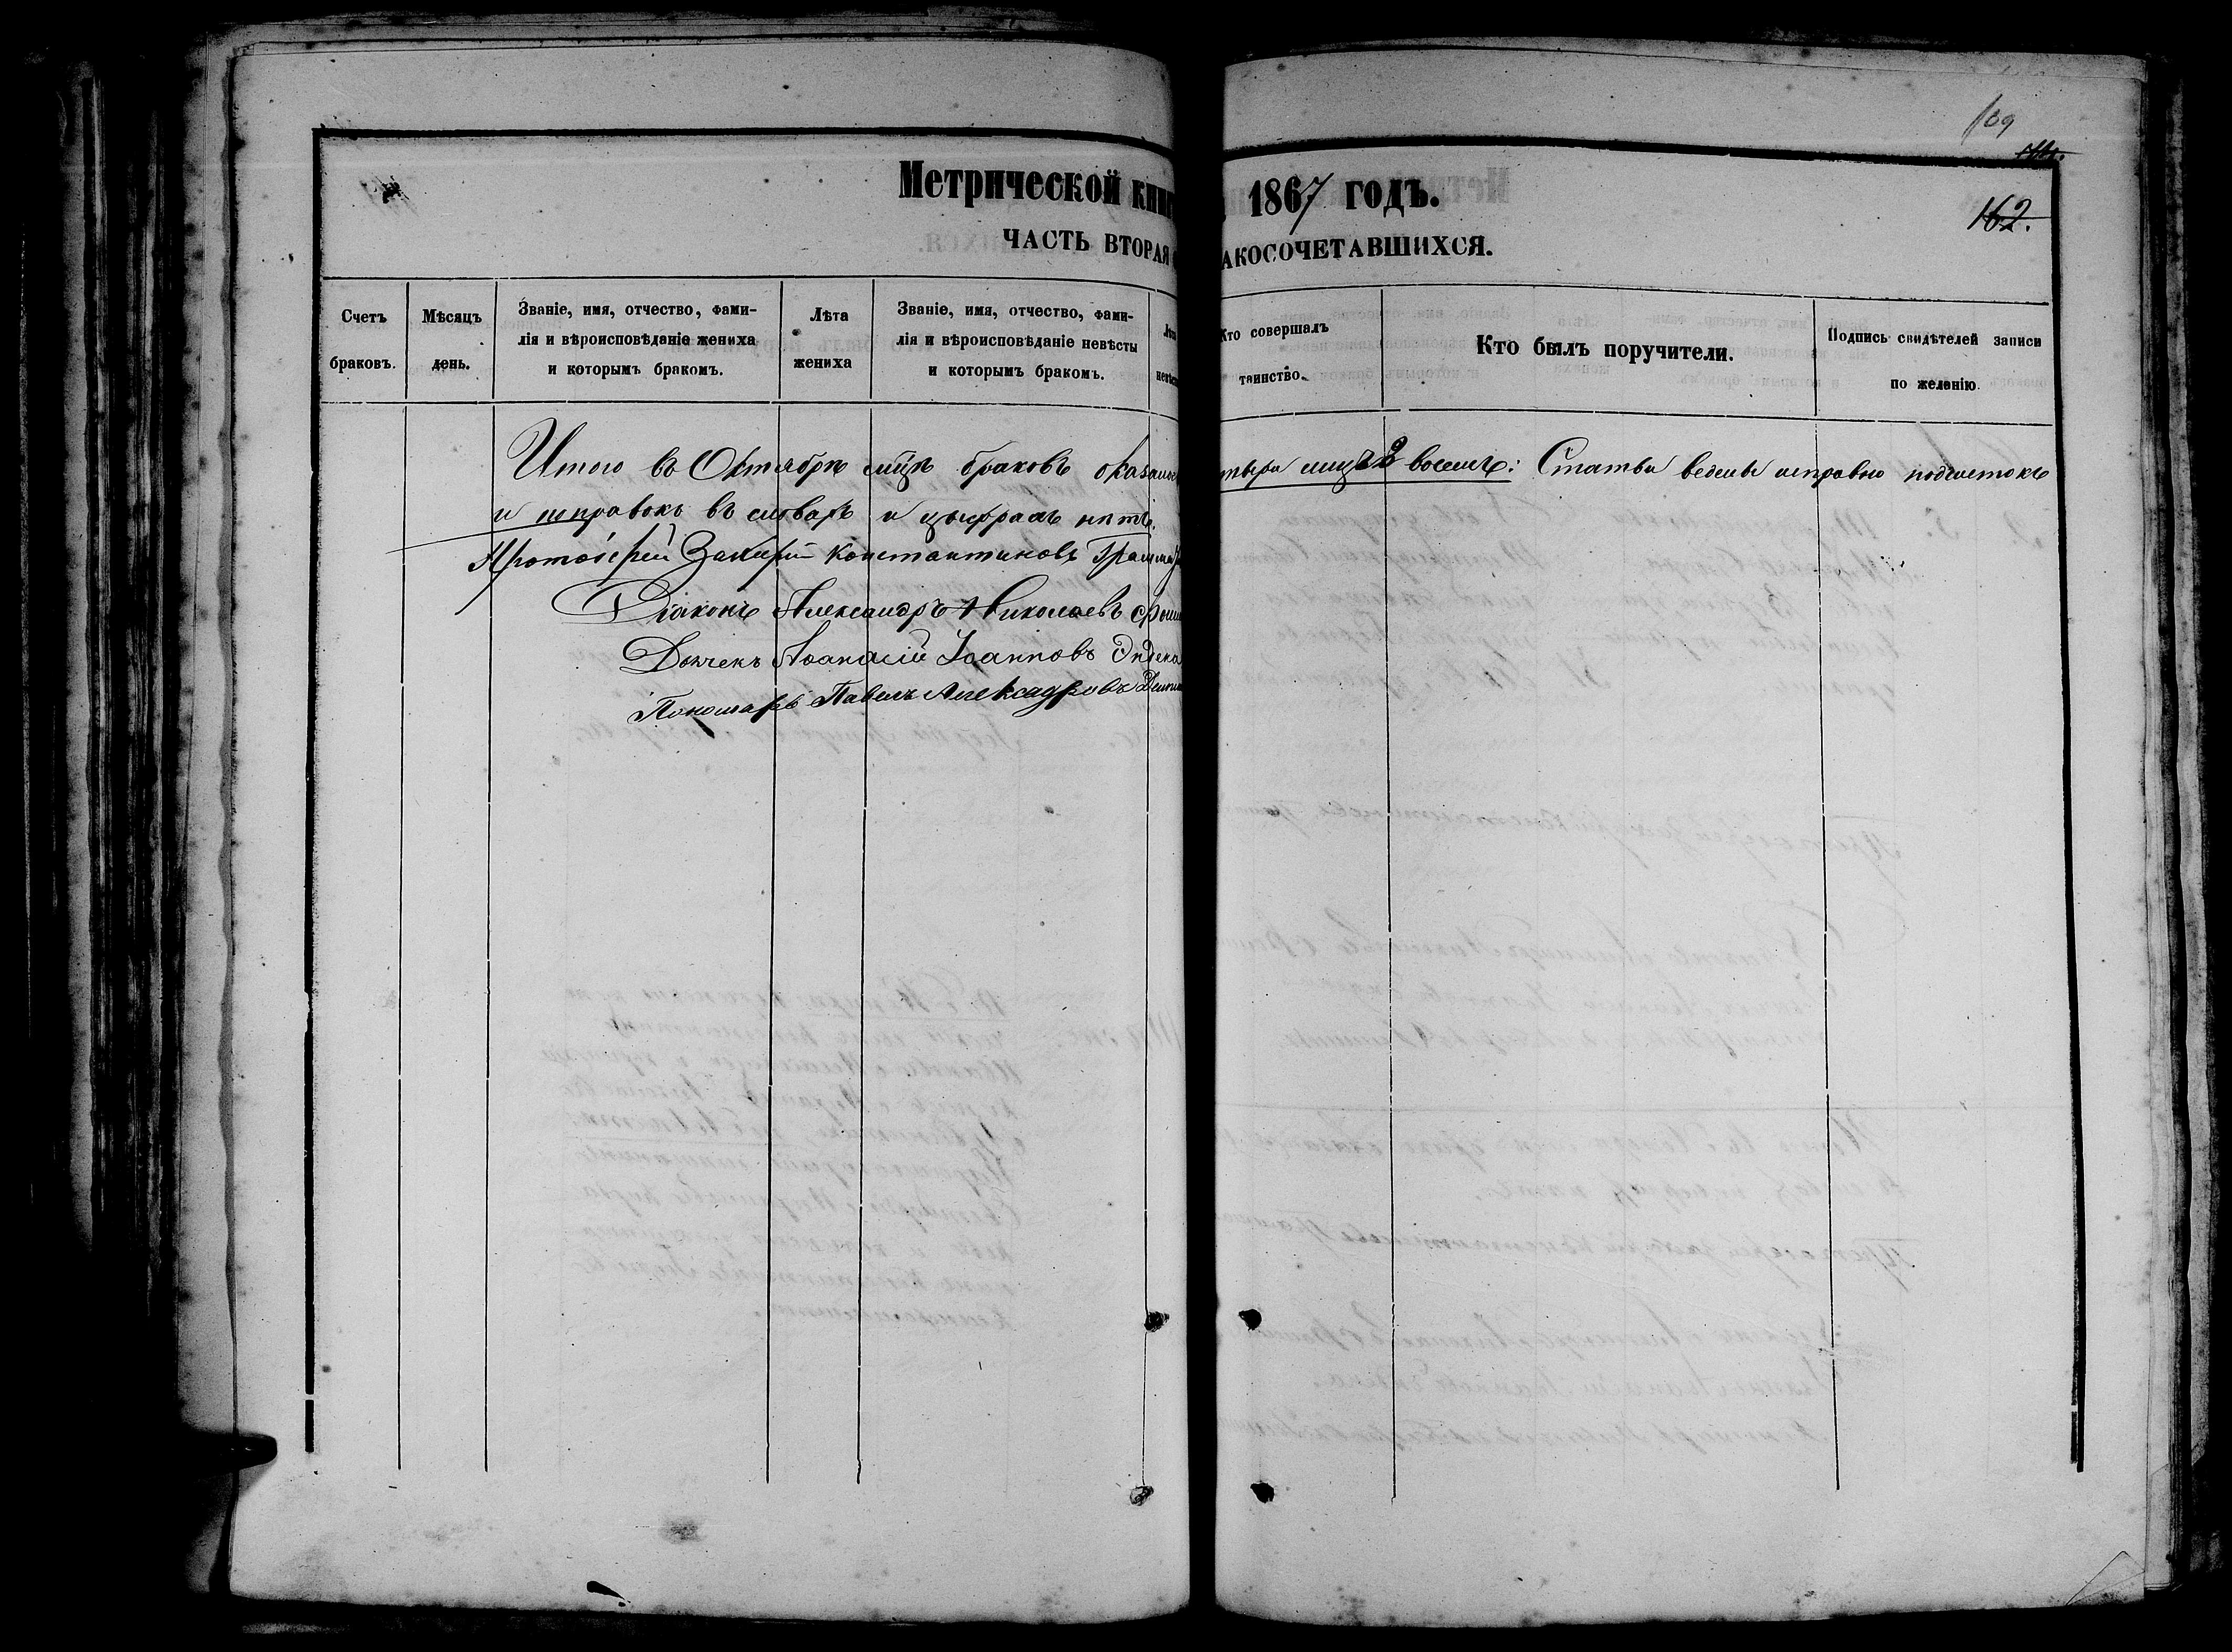 109
162.
Метрической книг 1867 годъ.
ЧАСТЬ ВТОРАЯ АКОСОЧЕТАВШИХСЯ.
Счетъ браковъ.
Мѣсяцъ день.
Званіе, имя, отчество, фами-
лія и вѣроисповѣданіе жениха
и которымъ бракомъ.
Лѣта жениха
Званіе, имя, отчество, фами-
лія и вѣроисповѣданіе невѣсты
и которымъ бракомъ.
Кто совершалъ таинство.
Кто былъ поручители.
Подпись свидѣтелей записи
по желанію.
Итого въ Октябрѣ мцѣ браковъ оказалос тыри лицъ восемь: Статьи ведены исправно подчистокъ
и поправокъ въ словахъ и цыфрахъ нѣтъ.
Протоіерей Захарій Константиновъ
Діаконъ Александръ Николаевъ
Дьячекъ Аѳанасій Іоанновъ
Пономарь Павелъ Алексадровъ